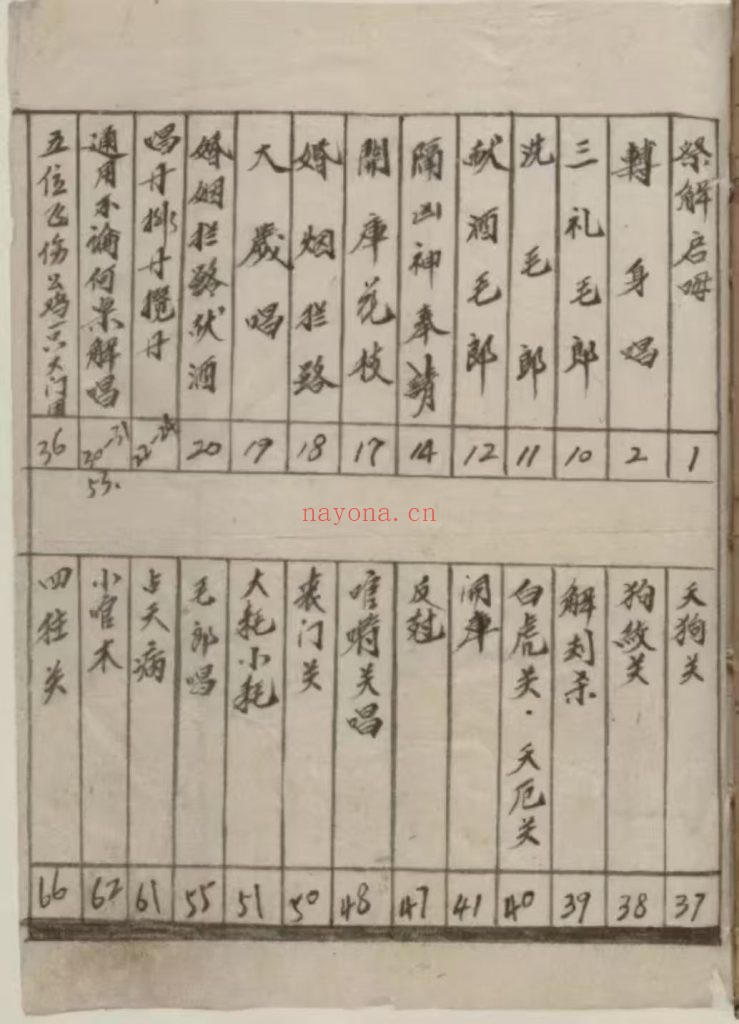 祭解启母
1
轉身唱
2
三礼毛郎
10
洗毛郎
11
献酒毛郎
12
隔凶神奉請
14
開庫花枝
17
婚烟拦路
18
大歲唱
19
婚姻拦路伏酒
20
唱丹排丹攬丹
22-24
通用不論何果解唱
30-31
53.
五位飞伤公鸡一只大门
36
nayona.cn
天狗关
37
狗绞关
38
解刦杀
39
白虎关·天厄关
40
開車
41
反
47
喳关唱
48
丧门关
50
大耗小耗
51
毛郎唱
55
占天病
61
小官木
62
四柱关
66